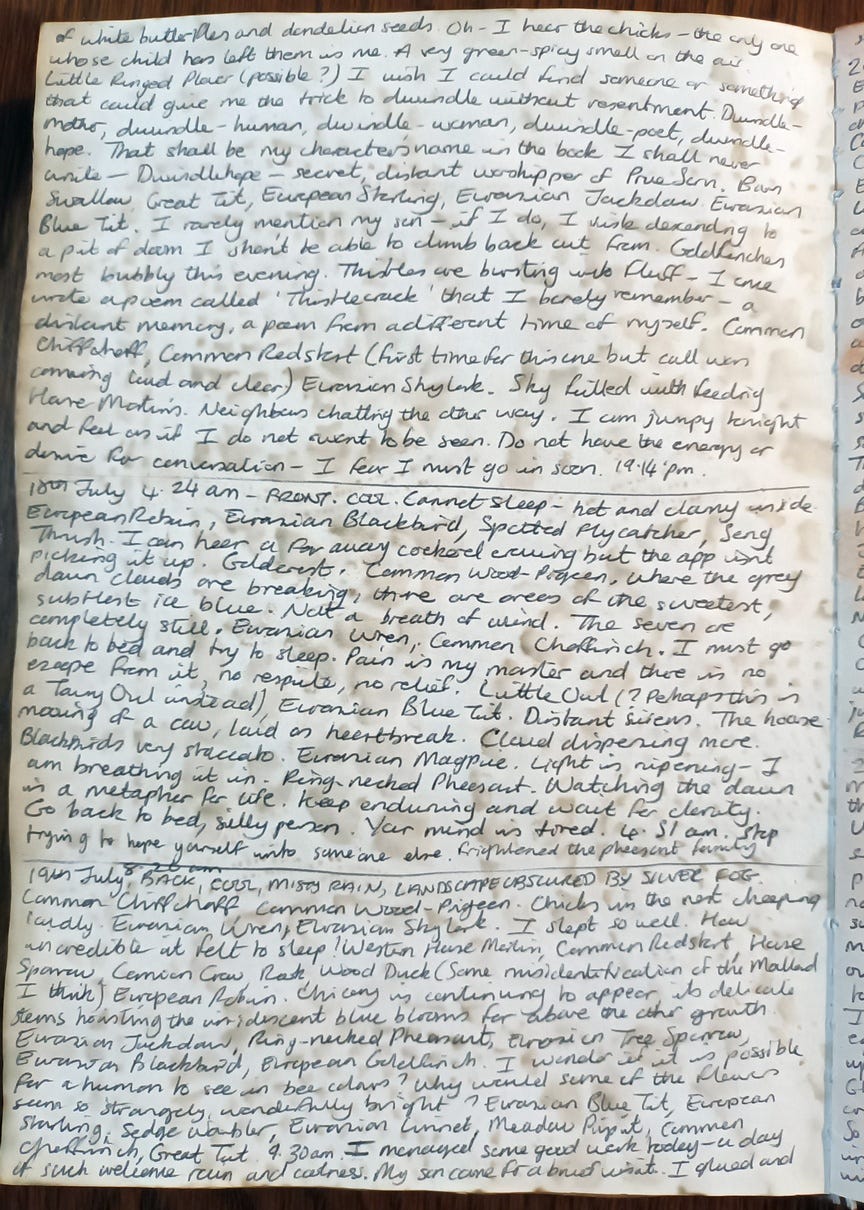 of white butterflies and dandelion seeds. Oh - I hear the chicks - the only one
whose child has left them is me. A very green-spicy smell on the air
Little Ringed Plover (possible?) I wish I could find someone or something
that could give me the trick to dwindle without resentment. Dwindle-
mother, dwindle-human, dwindle-woman, dwindle-poet, dwindle-
hope. That shall be my characters name in the book I shall never
write - Dwindlehope - secret, distant worshipper of Prue Sarn. Barn
Swallow, Great Tit, European Starling, Eurasian Jackdaw. Eurasian
Blue Tit. I rarely mention my son - if I do, I risk descending to
a pit of doom I shan't be able to climb back out from. Goldfinches
most bubbly this evening. Thistles are bursting into fluff - I once
wrote a poem called 'Thistlecrack' that I barely remember - a
distant memory, a poem from a different time of myself. Common
Chiffchaff, Common Redstart (first time for this one but call was
coming loud and clear) Eurasian Skylark. Sky filled with feeding
House Martins. Neighbours chatting the other way. I am jumpy tonight
and feel as if I do not want to be seen. Do not have the energy or
desire for conversation - I fear I must go in soon. 19.14 pm.
18th July 4.24 am - FRONT. COOL. Cannot sleep - hot and clammy inside.
European Robin, Eurasian Blackbird, Spotted Flycatcher, Song
Thrush. I can hear a far away cockerel crowing but the app isn't
picking it up. Goldcrest. Common Wood-Pigeon, where the grey
dawn clouds are breaking, there are areas of the sweetest,
subtlest ice blue. Not a breath of wind. The seven are
completely still. Eurasian Wren, Common Chaffinch. I must go
back to bed and try to sleep. Pain is my master and there is no
escape from it, no respite, no relief. Little Owl (? Perhaps this is
a Tawny Owl instead), Eurasian Blue Tit. Distant sirens. The hoarse
mooing of a cow, loud as heartbreak. Cloud dispersing more.
Blackbirds very staccato. Eurasian Magpie. Light is ripening - I
am breathing it in. Ring-necked Pheasant. Watching the dawn
is a metaphor for life. Keep enduring and wait for clarity.
Go back to bed, silly person. Your mind is tired. 4.51 am. Stop
trying to hope yourself into someone else. Frightened the pheasant family
19th July, 8.20 am BACK, COOL, MISTY RAIN, LANDSCAPE OBSCURED BY SILVER FOG.
Common Chiffchaff Common Wood-Pigeon. Chicks in the nest cheeping
loudly. Eurasian Wren, Eurasian Skylark. I slept so well. How
incredible it felt to sleep! Western House Martin, Common Redstart, House
Sparrow, Carrion Crow, Rook, Wood Duck (Some misidentification of the Mallard
I think) European Robin. Chicory is continuing to appear, its delicate
stems hoisting the iridescent blue blooms far above the other growth.
Eurasian Jackdaw, Ring-necked Pheasant, Eurasian Tree Sparrow,
Eurasian Blackbird, European Goldfinch. I wonder if it is possible
for a human to see in bee colours? Why would some of the flowers
seem so strangely, wonderfully bright? Eurasian Blue Tit, European
Starling, Sedge Warbler, Eurasian Linnet, Meadow Pipit, Common
Chaffinch, Great Tit 9.30am. I managed some good work today - a day
of such welcome rain and calmness. My son came for a brief visit. I glued and